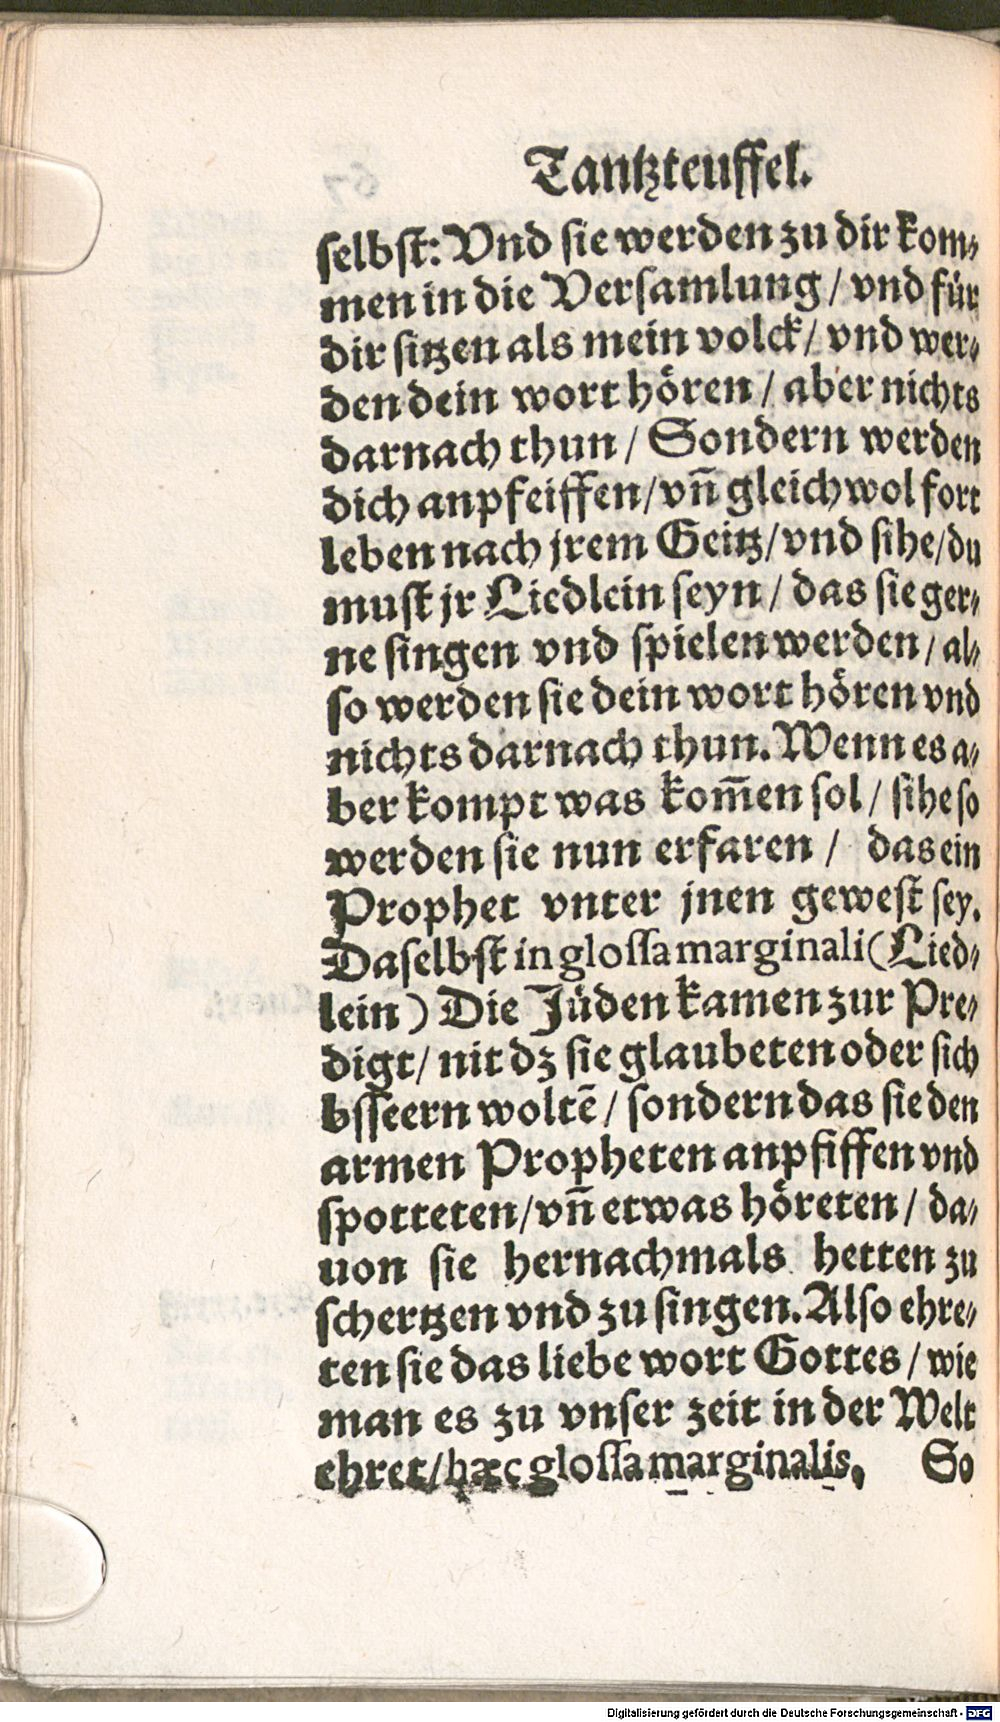 Tantzteuffel.
selbst: Vnd sie werden zu dir kom⸗
men in die Versamlung / vnd für
dir sitzen als mein volck / vnd wer⸗
den dein wort hören / aber nichts
darnach thun / Sondern werden
dich anpfeiffen / vñ gleichwol fort
leben nach jrem Geitz / vnd sihe / du
must jr Liedlein seyn / das sie ger⸗
ne singen vnd spielen werden / al⸗
so werden sie dein wort hören vnd
nichts darnach thun. Wenn es a⸗
ber kompt was kom̃en sol / sihe so
werden sie nun erfaren / das ein
Prophet vnter jnen gewest sey.
Daselbst in glossa marginali (Lied⸗
lein) Die Jüden kamen zur Pre⸗
digt / nit dz sie glaubeten oder sich
bsseern woltẽ / sondern das sie den
armen Propheten anpfiffen vnd
spotteten / vñ etwas höreten / da⸗
uon sie hernachmals hetten zu
schertzen vnd zu singen. Also ehre⸗
ten sie das liebe wort Gottes / wie
man es zu vnser zeit in der Welt
ehret / hæc glossa marginalis, So
Digitalisierung gefördert durch die Deutsche Forschungsgemeinschaft - DFG